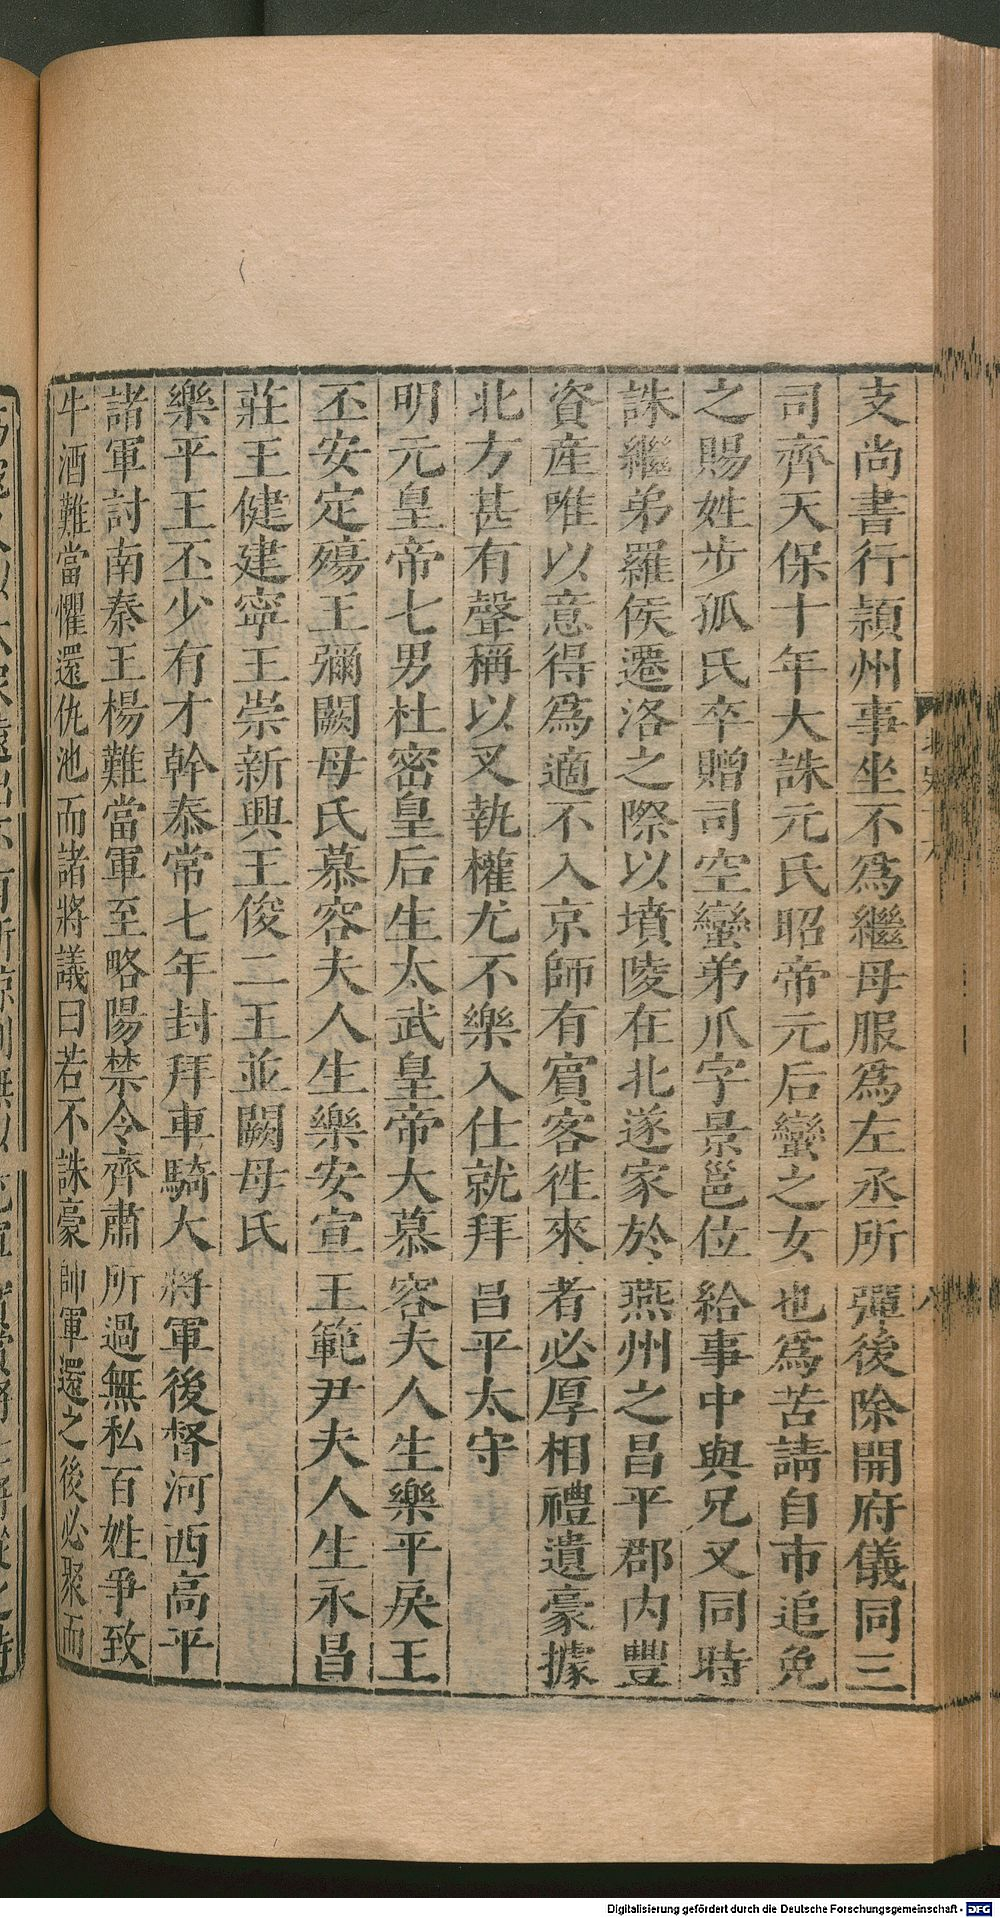 支尚書行頴州事坐不爲繼母服爲左丞所彈後除開府儀同三
司齊天保十年大誅元氏昭帝元后蠻之女也爲苦請自市追免
之賜姓步孤氏卒贈司空蠻弟爪字景邕位給事中與兄叉同時
誅繼弟羅侯遷洛之際以墳陵在北遂家於燕州之昌平郡內豐
資産唯以意得爲適不入京師有賓客徃來者必厚相禮遺豪據
北方甚有聲稱以叉執權尤不樂入仕就拜昌平太守
明元皇帝七男杜密皇后生太武皇帝大慕容夫人生樂平戾王
丕安定殤王彌闕母氏慕容夫人生樂安宣王範尹夫人生永昌
莊王健建寧王崇新興王俊二王並闕母氏
樂平王丕少有才幹泰常七年封拜車騎大將軍後督河西高平
諸軍討南秦王楊難當軍至略陽禁令齊肅所過無私百姓爭致
牛酒難當懼還仇池而諸將議曰若不誅豪帥軍還之後必聚而
北史十六
八
Digitalisierung gefördert durch die Deutsche Forschungsgemeinschaft - DFG